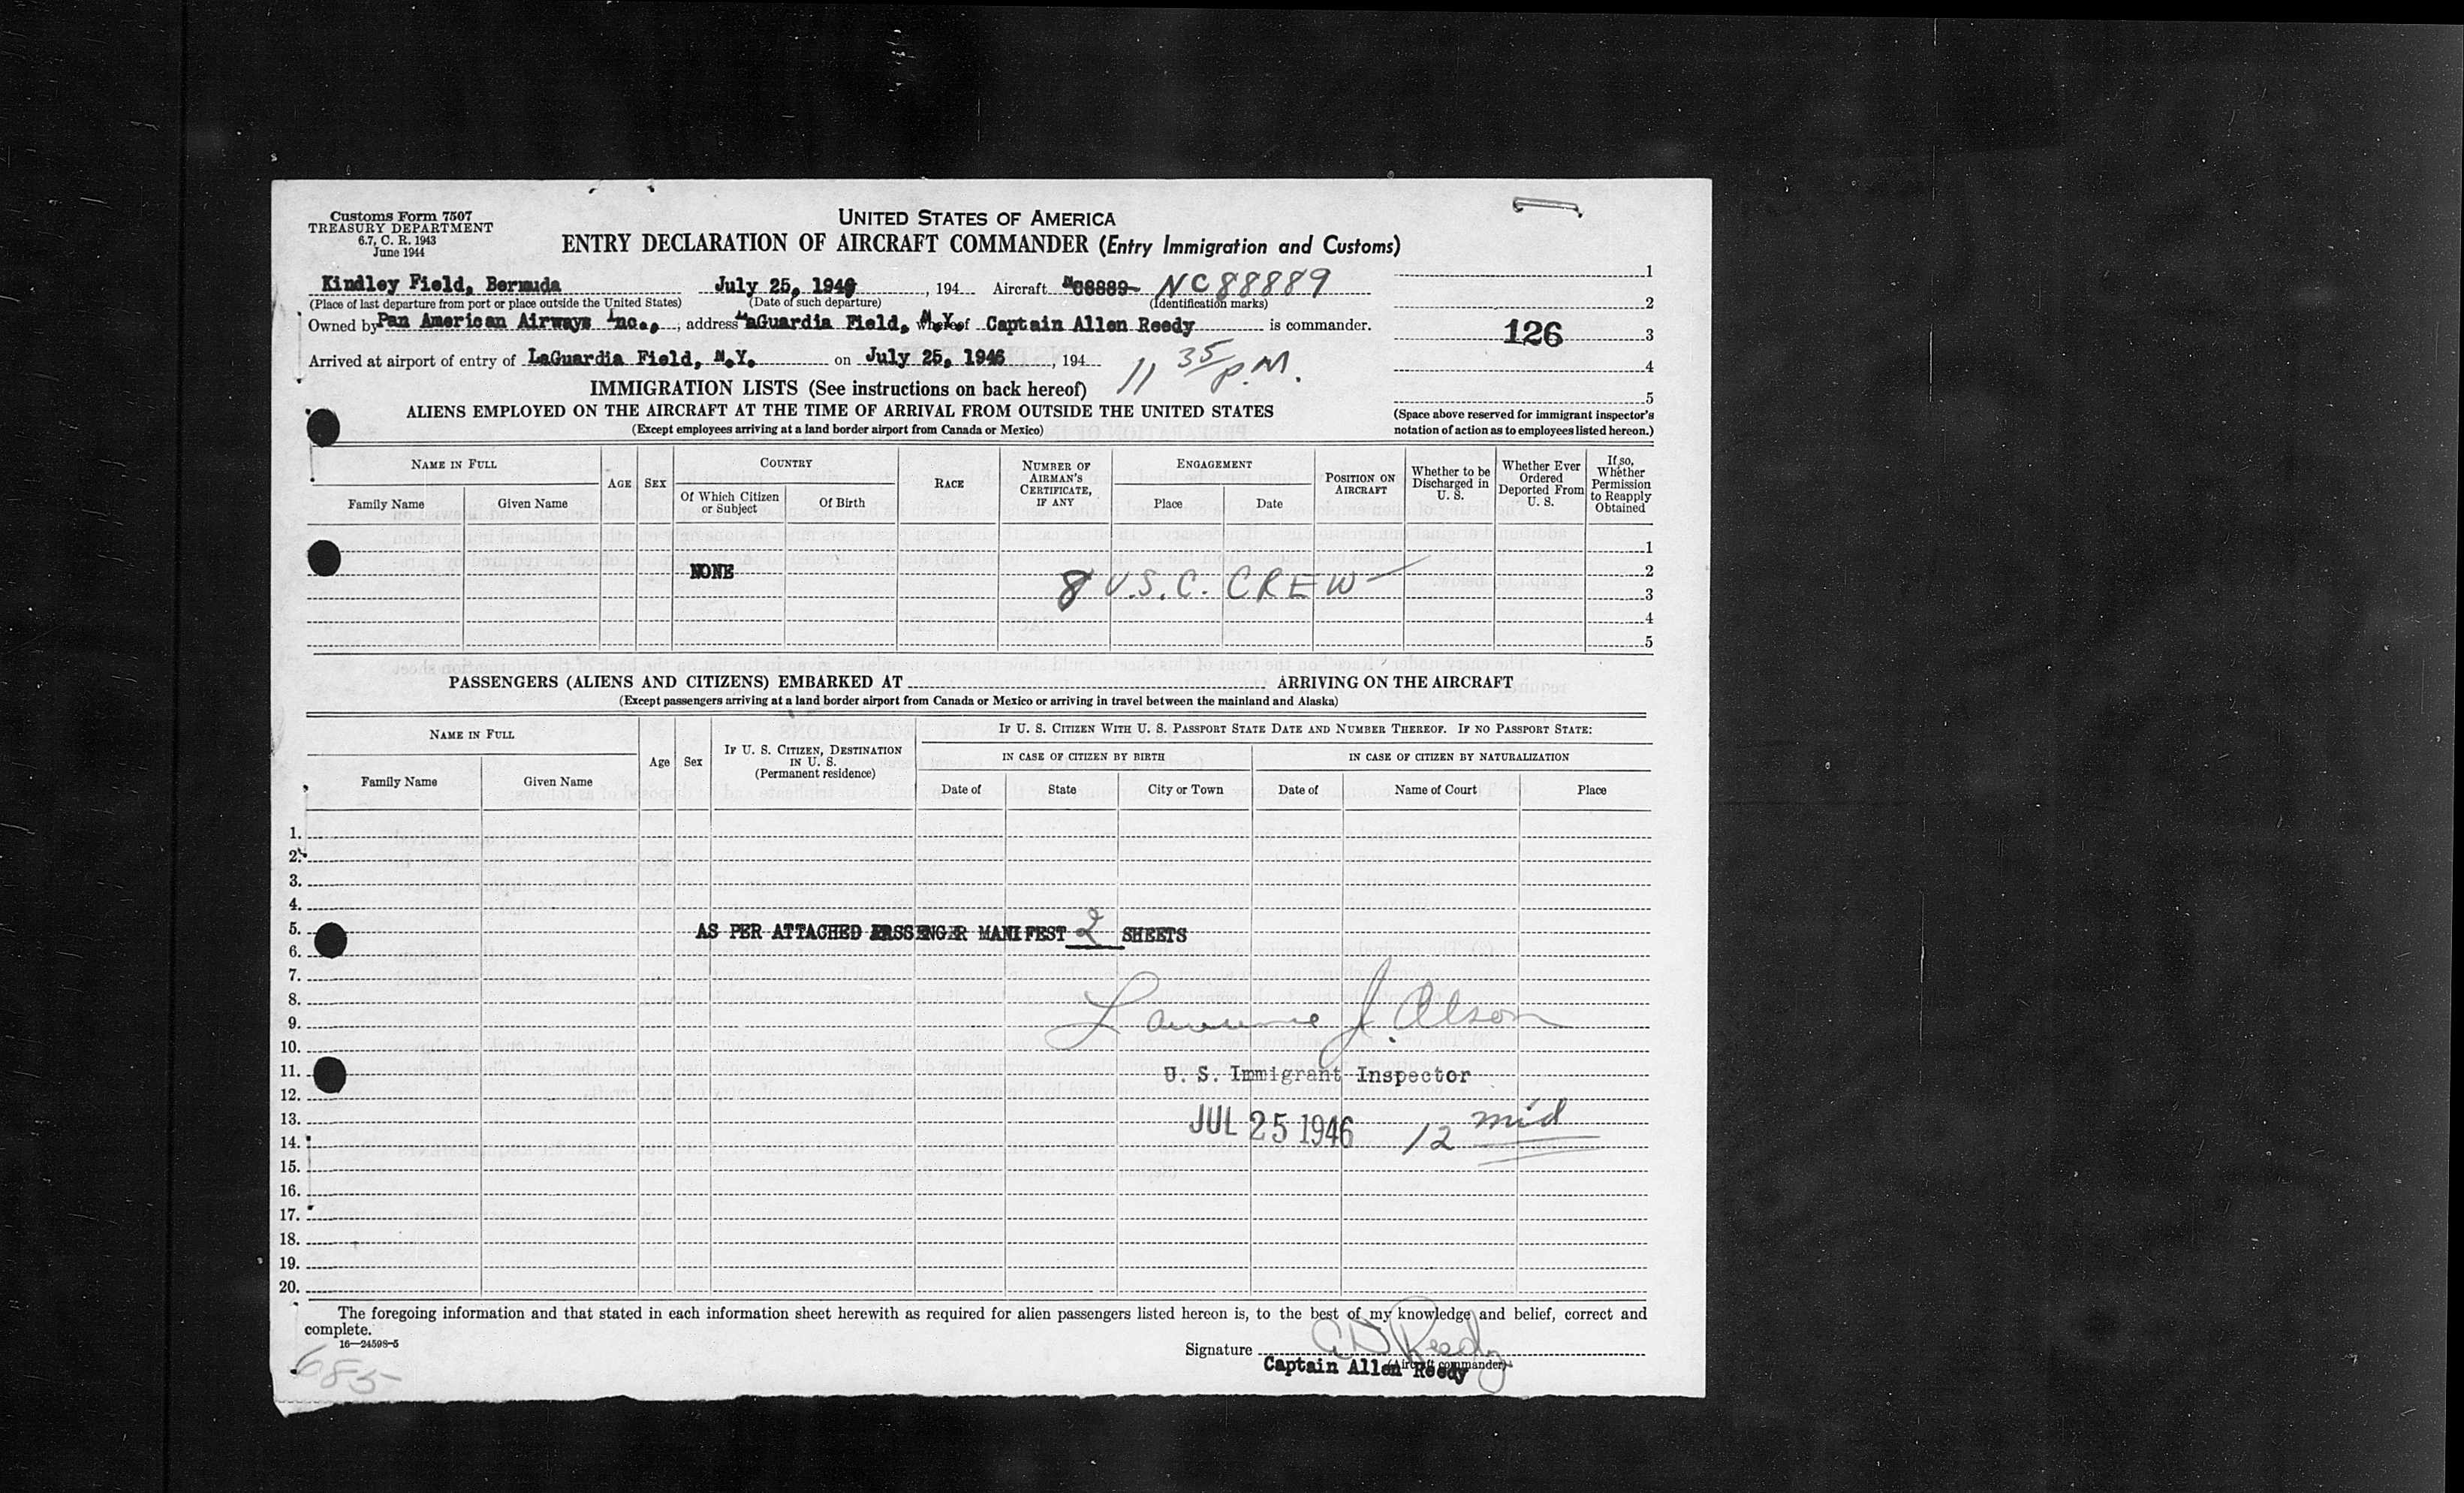 Customs Form 7507
TREASURY DEPARTMENT
6.7, C. R. 1943
June 1944
UNITED STATES OF AMERICA
ENTRY DECLARATION OF AIRCRAFT COMMANDER (Entry Immigration and Customs)
Kindley Field, Bermuda July 25, 1946, 194 Aircraft NC8889- NC88889
(Place of last departure from port or place outside the United States) (Date of such departure) (Identification marks)
Owned by Pan American Airways Inc., , address LaGuardia Field, N.Y. whereof Captain Allen Reedy is commander.
Arrived at airport of entry of LaGuardia Field, N.Y. on July 25, 1946, 194 11 35/P.M.
1
2
126 3
4
5
(Space above reserved for immigrant inspector's
notation of action as to employees listed hereon.)
IMMIGRATION LISTS (See instructions on back hereof)
ALIENS EMPLOYED ON THE AIRCRAFT AT THE TIME OF ARRIVAL FROM OUTSIDE THE UNITED STATES
(Except employees arriving at a land border airport from Canada or Mexico)
NAME IN FULL
Family Name Given Name
AGE SEX
COUNTRY
Of Which Citizen or Subject Of Birth
RACE
NUMBER OF AIRMAN'S CERTIFICATE, IF ANY
ENGAGEMENT
Place Date
POSITION ON AIRCRAFT
Whether to be Discharged in U. S.
Whether Ever Ordered Deported From U. S.
If so, Whether Permission to Reapply Obtained
1
NONE 2
8 U.S.C. CREW 3
4
5
PASSENGERS (ALIENS AND CITIZENS) EMBARKED AT ARRIVING ON THE AIRCRAFT
(Except passengers arriving at a land border airport from Canada or Mexico or arriving in travel between the mainland and Alaska)
NAME IN FULL
Family Name Given Name
Age Sex
IF U. S. CITIZEN, DESTINATION IN U. S. (Permanent residence)
IF U. S. CITIZEN WITH U. S. PASSPORT STATE DATE AND NUMBER THEREOF. IF NO PASSPORT STATE:
IN CASE OF CITIZEN BY BIRTH IN CASE OF CITIZEN BY NATURALIZATION
Date of State City or Town Date of Name of Court Place
1.
2.
3.
4.
5. AS PER ATTACHED PASSENGER MANIFEST 2 SHEETS
6.
7.
8.
9. Lawrence J. Olson
10.
11. U. S. Immigrant Inspector
12.
13. JUL 25 1946 12 mid
14.
15.
16.
17.
18.
19.
20.
The foregoing information and that stated in each information sheet herewith as required for alien passengers listed hereon is, to the best of my knowledge and belief, correct and
complete.
16—24598-5
Signature A D Reedy
(Aircraft commander)
Captain Allen Reedy
685